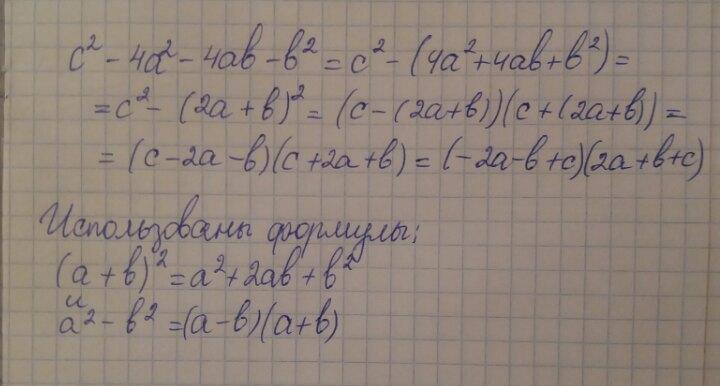 c² - 4a² - 4ab - b² = c² - (4a² + 4ab + b²) =
= c² - (2a + b)² = (c - (2a+b))(c + (2a+b)) =
= (c - 2a - b)(c + 2a + b) = (-2a - b + c)(2a + b + c)
Использованы формулы:
(a + b)² = a² + 2ab + b²
и
a² - b² = (a - b)(a + b)